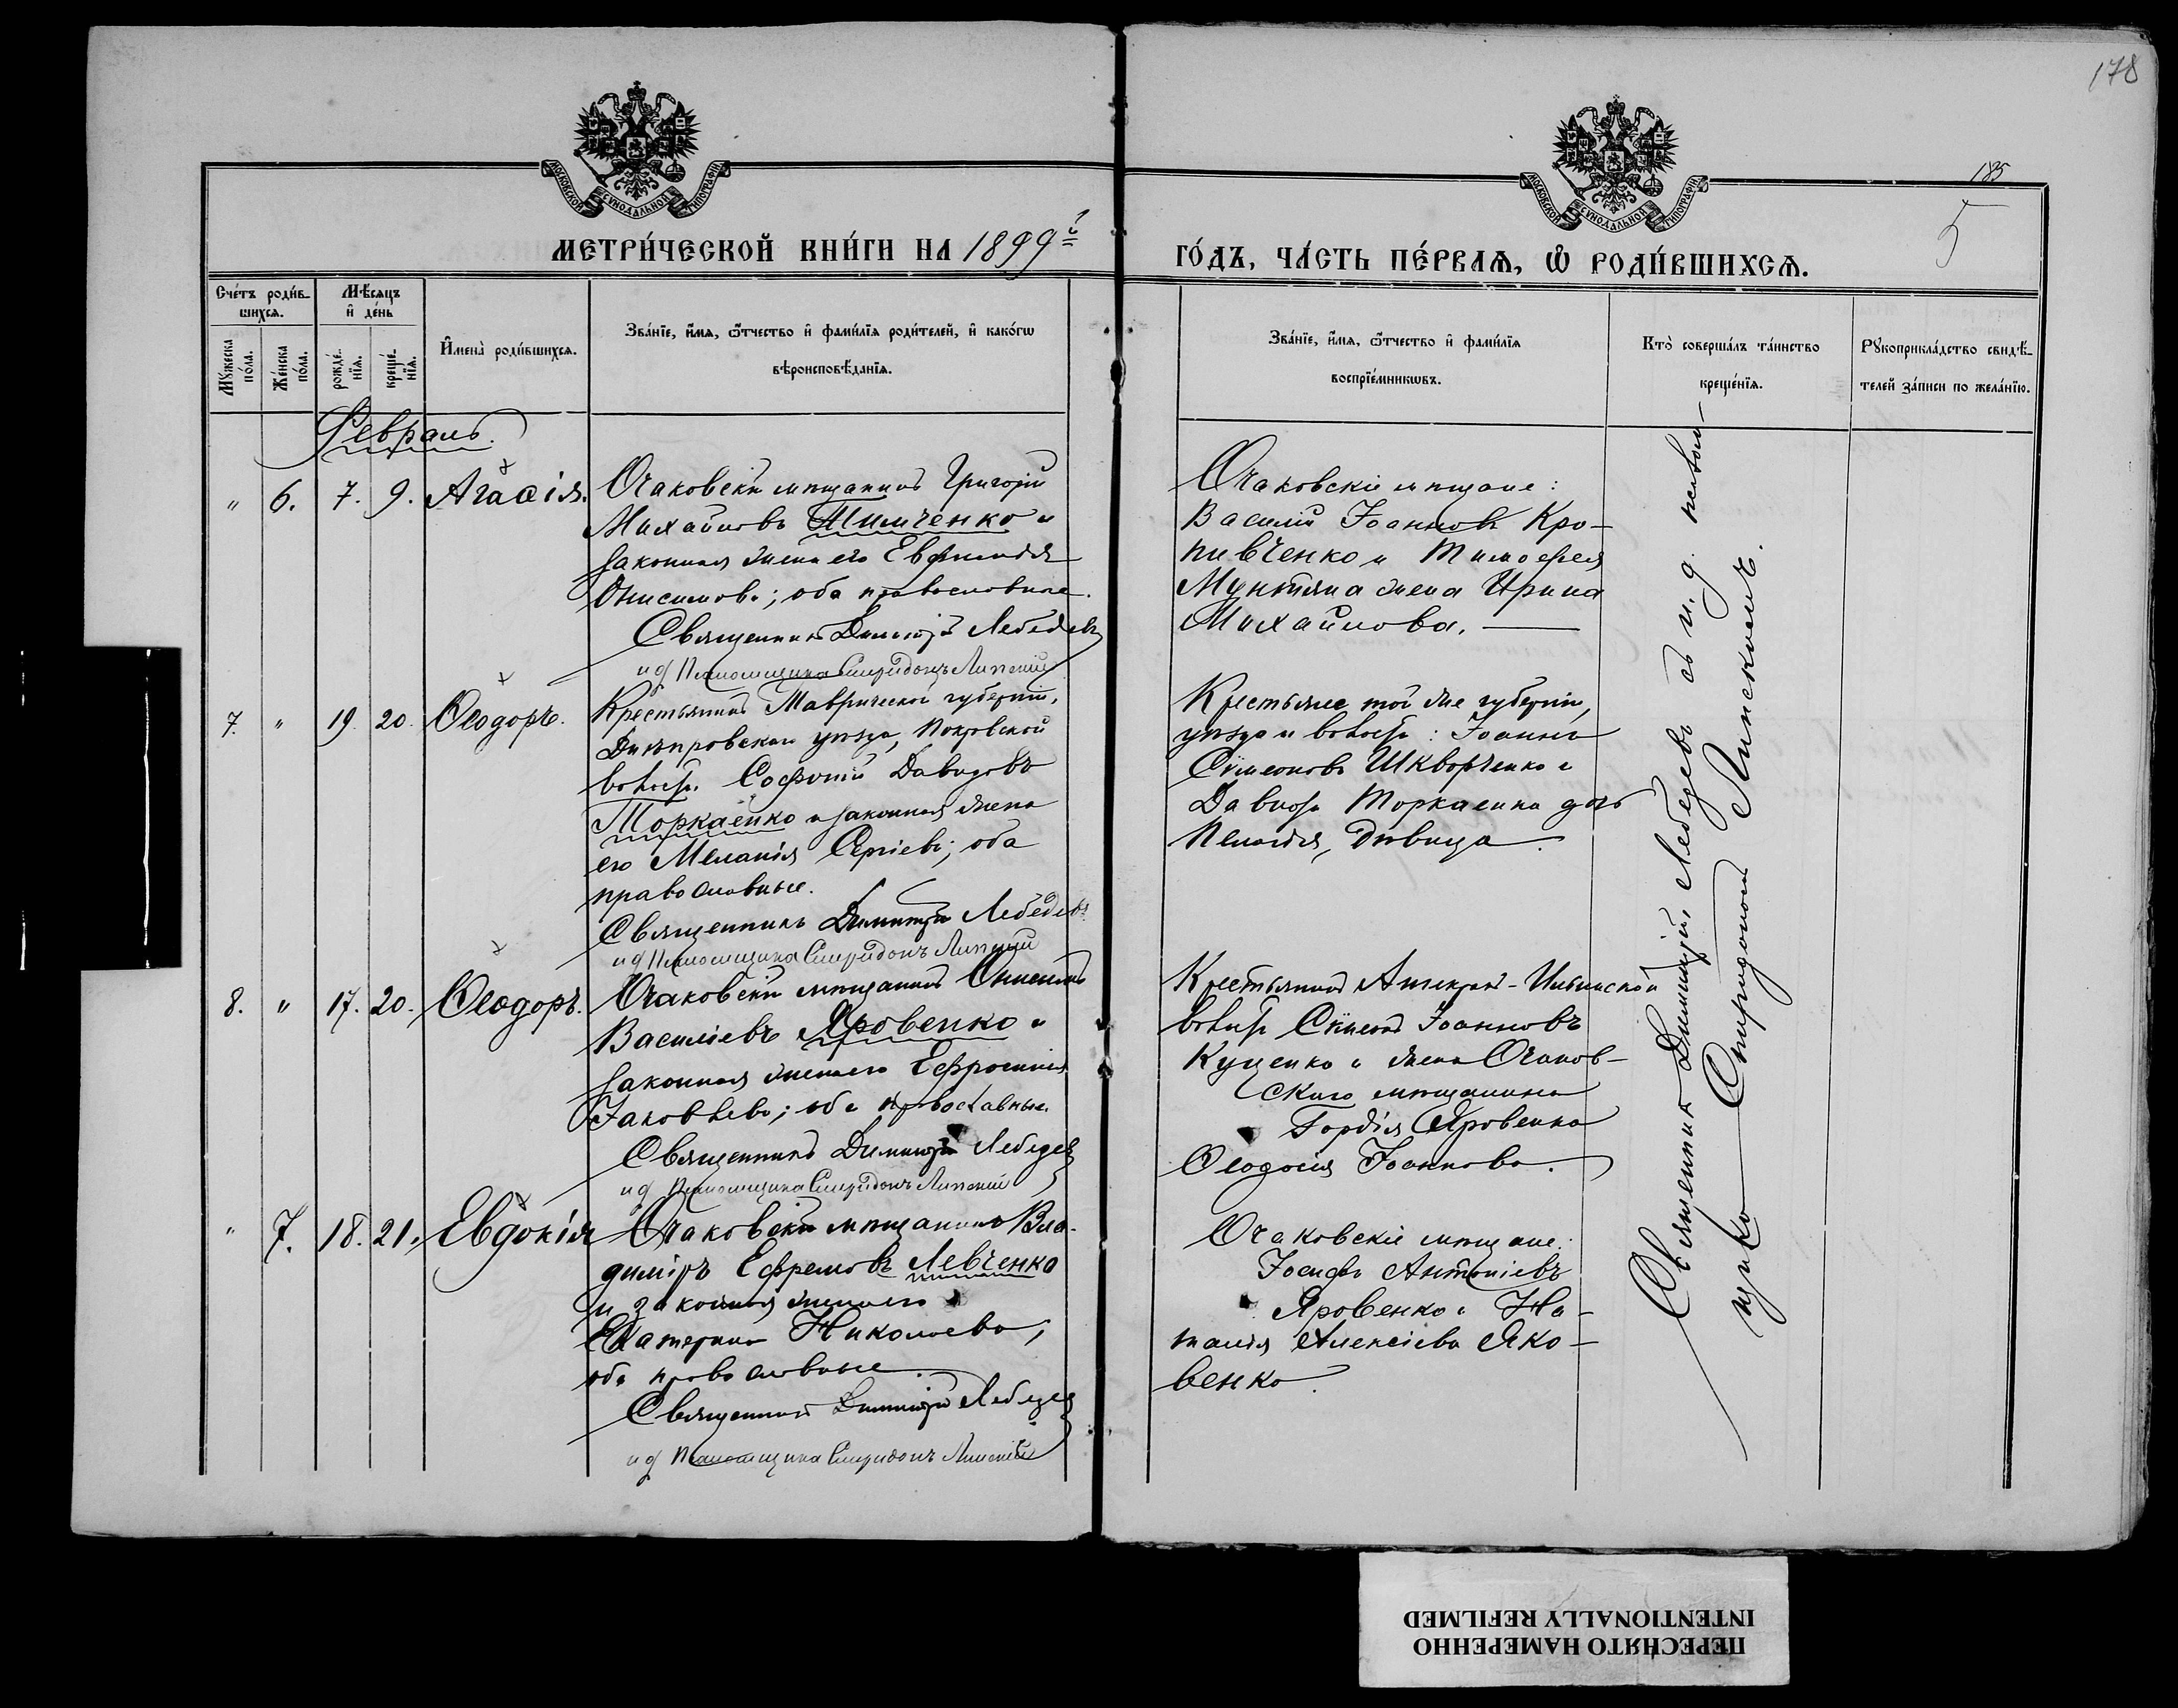 178
МОСКОВСКОЙ СѴНОДАЛЬНОЙ ТИПОГРАФІИ
МОСКОВСКОЙ СѴНОДАЛЬНОЙ ТИПОГРАФІИ
185
5
МЕТРИ́ЧЕСКОЙ КНИ́ГИ НА 1899й
ГО́ДЪ, ЧА́СТЬ ПЕ́РВАѦ, Ѡ РОДИ́ВШИХСѦ.
Сче́тъ роди́в-
шихсѧ.
Мѣ́сѧцъ
и҆ де́нь
Мꙋ́жеска по́ла.
Же́нска по́ла.
рожде́-нїѧ.
креще́-нїѧ.
И҆мена̀ роди́вшихсѧ.
Зва́нїе, и҆́мѧ, ѻ҆́тчество и҆ фами́лїѧ роди́телей, и҆ како́гѡ
вѣроисповѣ́данїѧ.
Зва́нїе, и҆́мѧ, ѻ҆́тчество и҆ фами́лїѧ
воспрїе́мникѡвъ.
Кто̀ соверша́лъ та́инство
креще́нїѧ.
Рꙋкоприкла́дство свидѣ́-
телей за́писи по жела́нїю.
Февраль.
" 6. 7. 9. Агаѳія.
Очаковскій мѣщанинъ Григорій
Михайловъ
законная жена его Евфимія
Онисимова; оба православные.
Священникъ Димитрій Лебедевъ
и д Псаломщика Спиридонъ Липскій
Очаковскіе мѣщане:
Василій Іоанновъ Кро-
пивченко и Тимоѳея
Мунтяна жена Ирина
Михайлова.
7. " 19 20. Ѳеодоръ.
Крестьянинъ Таврической губерніи,
Днѣпровскаго уѣзда, Покровской
волости Софоній Давидовъ
Торкаенко и законная жена
его Меланія Сергіева; оба
православные.
Священникъ Димитрій Лебедевъ
и д Псаломщика Спиридонъ Липскій
Крестьяне той же губерніи,
уѣзда и волости: Іоаннъ
Сѵмеоновъ Шкворченко и
Давида Торкаенка дочь
Пелагія, дѣвица.
8. " 17. 20. Ѳеодоръ.
Очаковскій мѣщанинъ Онисимъ
Василіевъ Яровенко и
законная жена его Ефросинія
Іаковлева; оба православные.
Священникъ Димитрій Лебедевъ
и д Псаломщика Спиридонъ Липскій
Крестьянинъ Ильинской
волости Сѵмеонъ Іоанновъ
Куценко и жена Очаков-
скаго мѣщанина
Гордія Яровенка
Ѳеодосія Іоаннова.
" 7. 18. 21. Евдокія
Очаковскій мѣщанинъ Вла-
диміръ Ефремовъ Левченко
и законная жена его
Екатерина Николаева;
оба православные.
Священникъ Димитрій Лебедевъ
и д Псаломщика Спиридонъ Липскій
Очаковскіе мѣщане:
Іосифъ Антоніевъ
Яровенко и На-
талія Алексіева Яко-
венко.
Священникъ Димитрій Лебедевъ съ и. д. псалом-
щика Спиридономъ Липскимъ.
INTENTIONALLY REFILMED
ПЕРЕСНЯТО НАМЕРЕННО